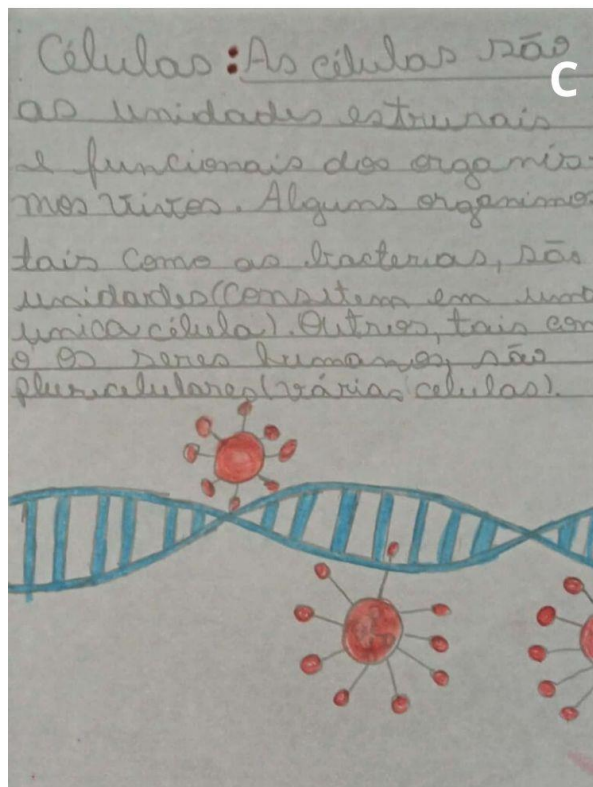 Células: As células são
C
as unidades estrurais
e funcionais dos organis-
mos vivos. Alguns organismo
tais como as bacterias, são
unidades(Consitem em uma
unica célula). Outros, tais com
o os seres humanos, são
pluricelulares(várias celulas).